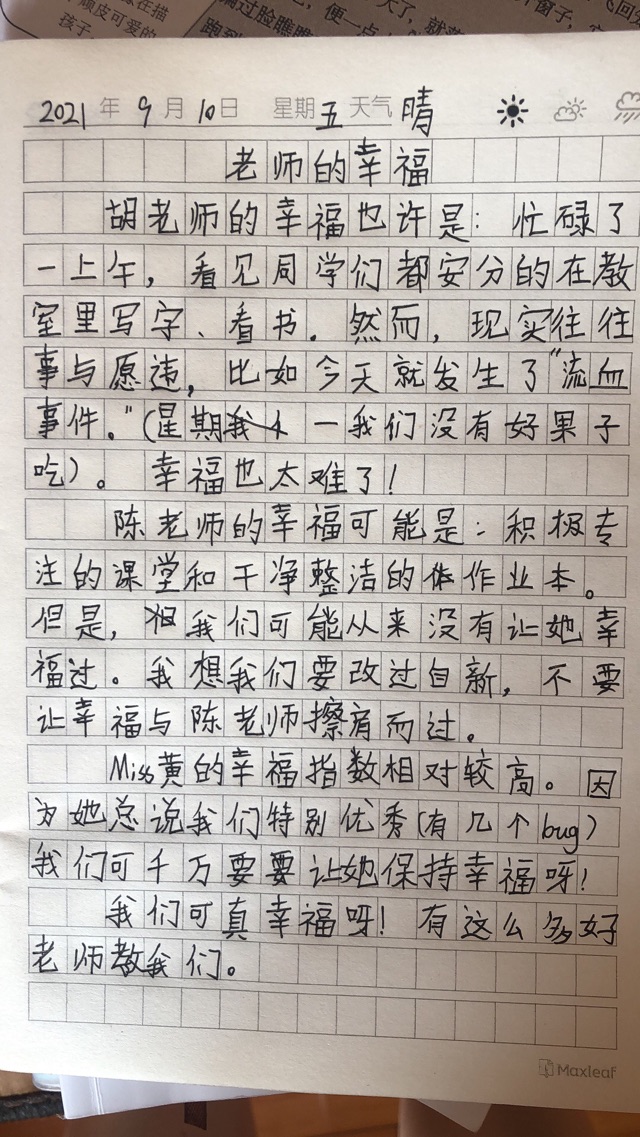 像在描
顽皮可爱的
孩子
2021年9月10日 星期五 天气 晴
老师的幸福
胡老师的幸福也许是：忙碌了
一上午，看见同学们都安分的在教
室里写字、看书。然而，现实往往
事与愿违，比如今天就发生了“流血
事件。”（星期一我们没有好果子
吃）。幸福也太难了！
陈老师的幸福可能是：积极专
注的课堂和干净整洁的作业本。
但是，我们可能从来没有让她幸
福过。我想我们要改过自新，不要
让幸福与陈老师擦肩而过。
Miss黄的幸福指数相对较高。因
为她总说我们特别优秀（有几个bug）
我们可千万要要让她保持幸福呀！
我们可真幸福呀！有这么多好
老师教我们。
Maxleaf